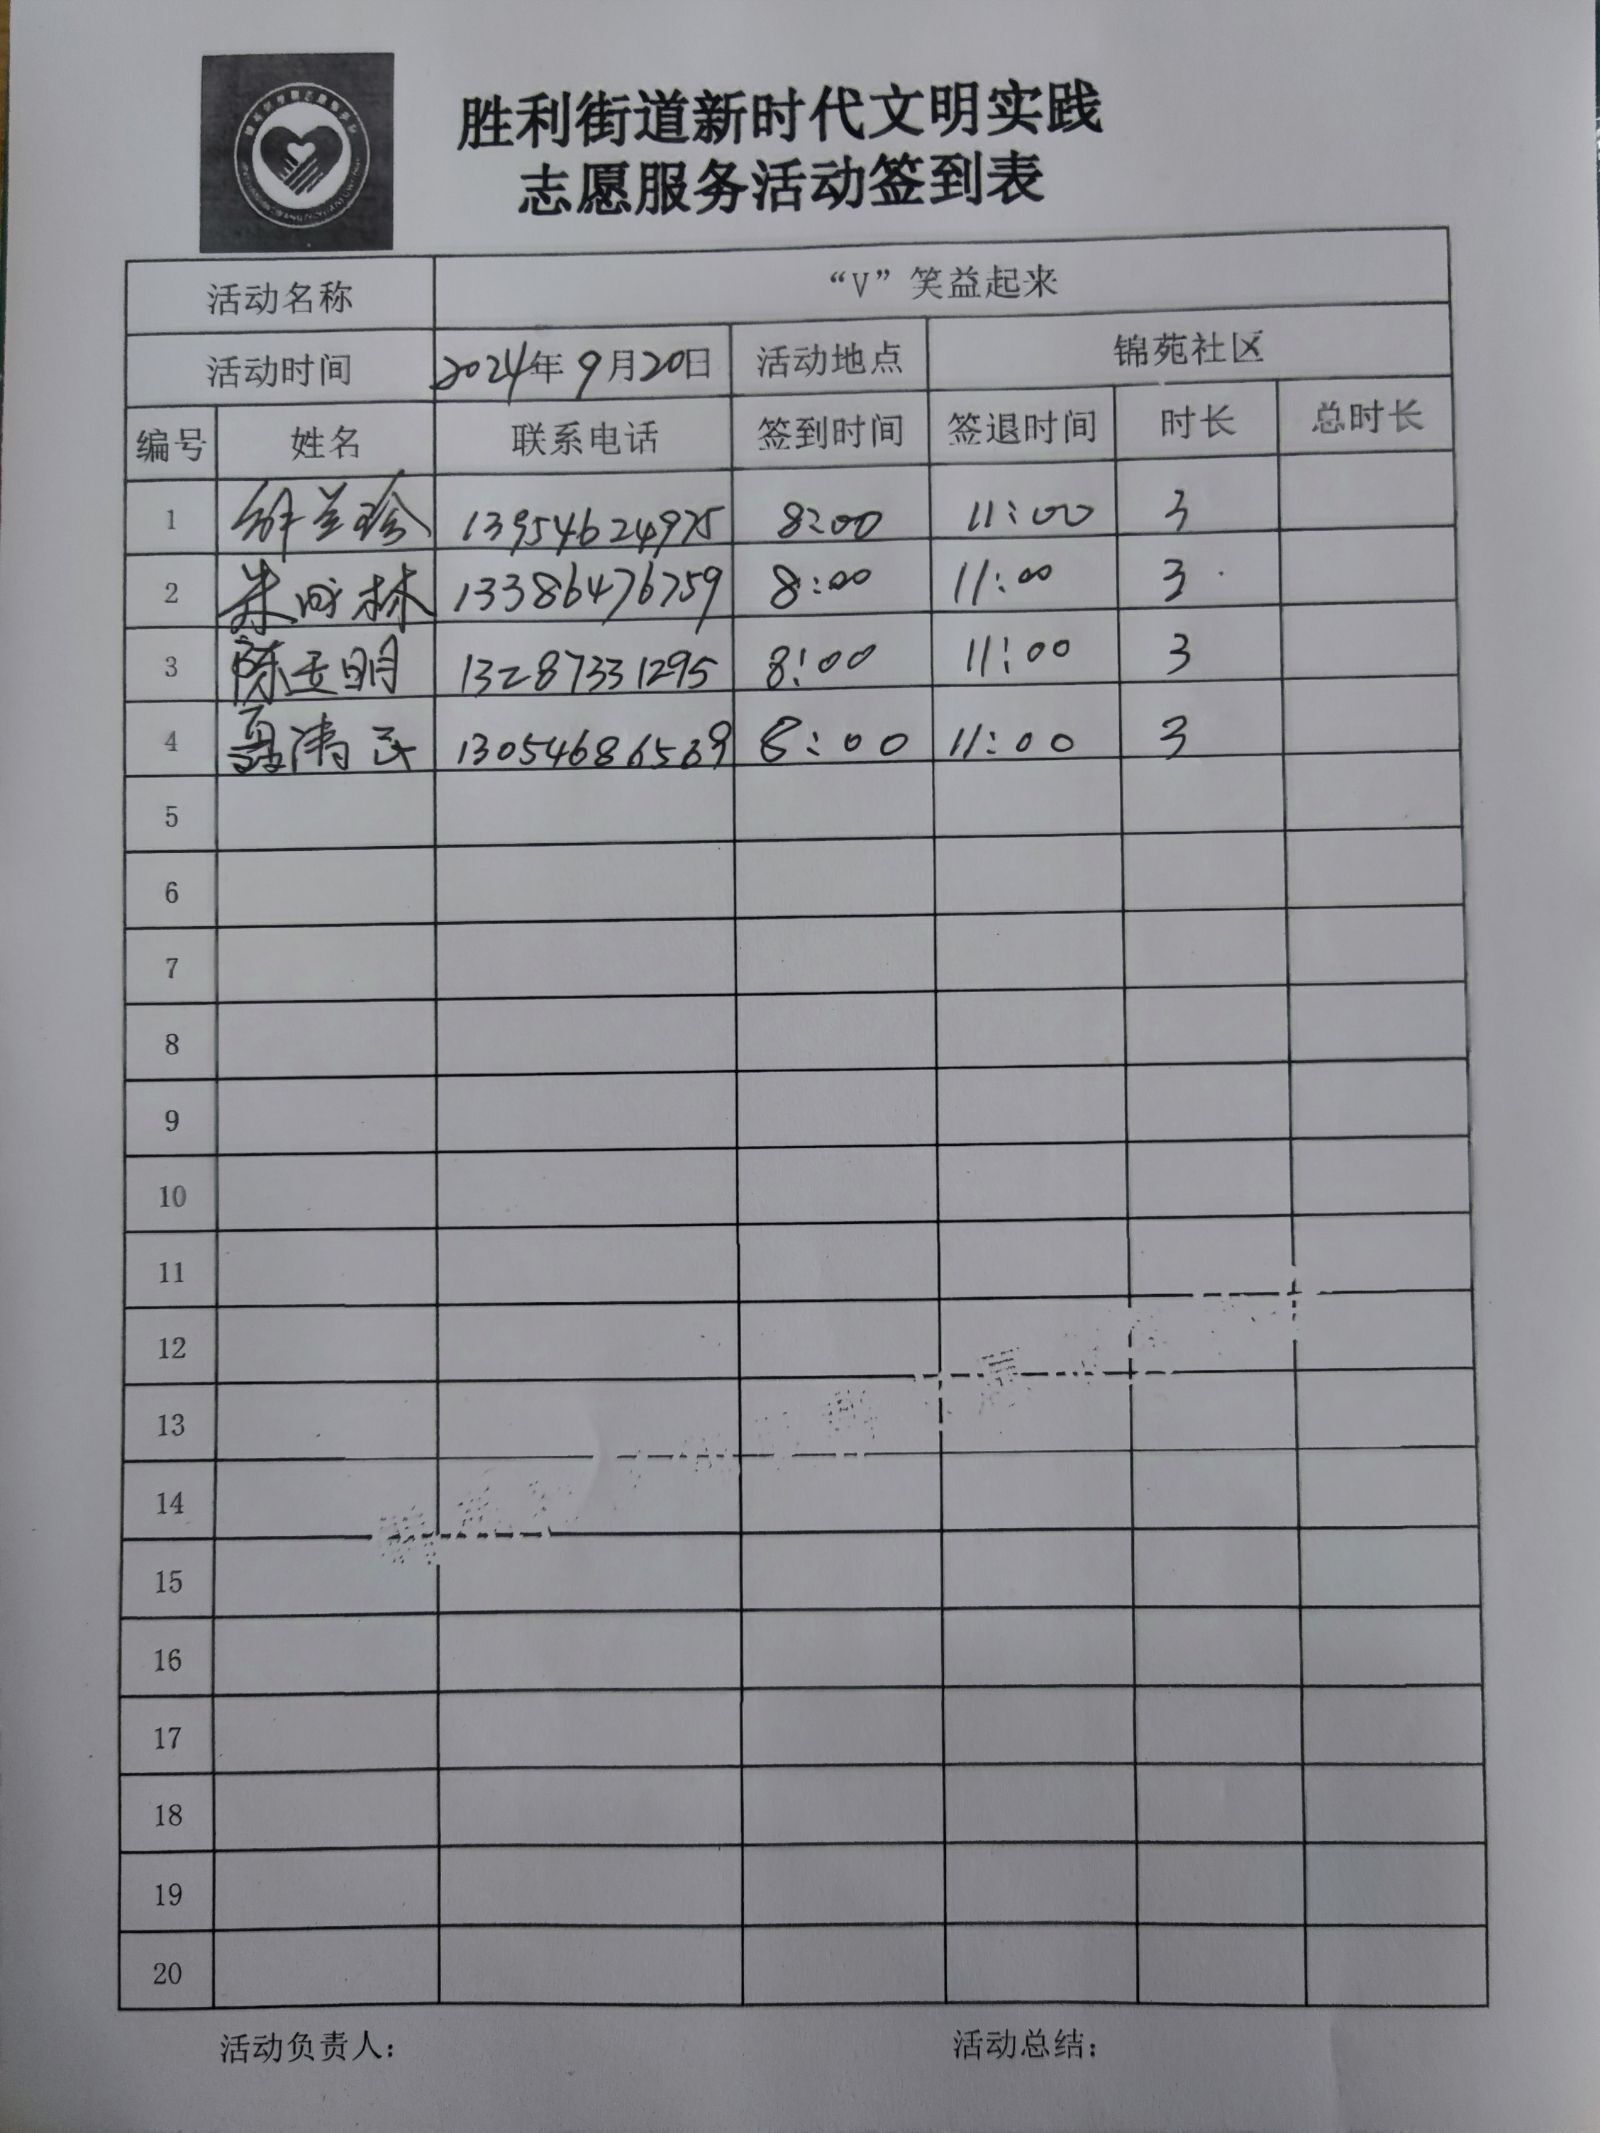 胜利街道新时代文明实践
志愿服务活动签到表
活动名称 “V”笑益起来
活动时间 2024年9月20日 活动地点 锦苑社区
编号 姓名 联系电话 签到时间 签退时间 时长 总时长
1 兰珍 13954624975 8:00 11:00 3
2 朱成林 13386476759 8:00 11:00 3
3 陈玉明 13287331295 8:00 11:00 3
4 13054686569 8:00 11:00 3
5
6
7
8
9
10
11
12
13
14
15
16
17
18
19
20
活动负责人: 活动总结: